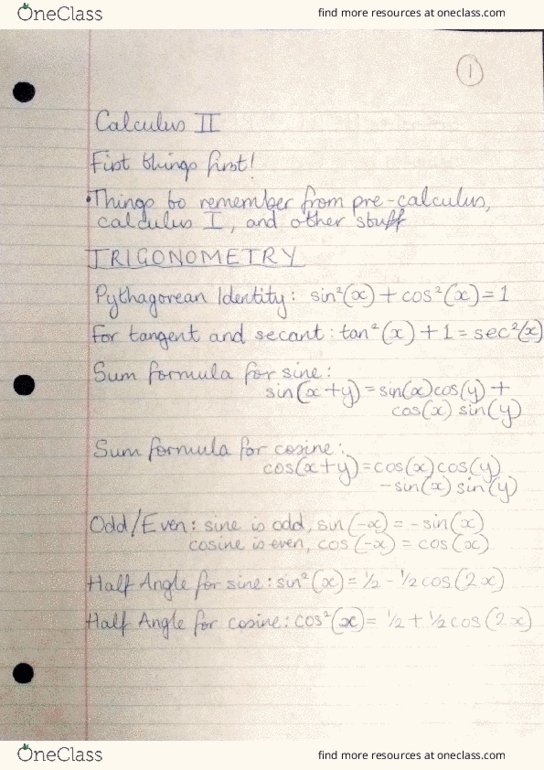 OneClass find more resources at oneclass.com
1
Calculus II
First things first!
•Things to remember from pre-calculus,
calculus I, and other stuff
TRIGONOMETRY
Pythagorean Identity: sin²(x) + cos²(x) = 1
For tangent and secant: tan²(x) + 1 = sec²(x)
Sum formula for sine:
sin(x+y) = sin(x)cos(y) +
cos(x) sin(y)
Sum formula for cosine:
cos(x+y) = cos(x)cos(y)
-sin(x) sin(y)
Odd/Even: sine is odd, sin(-x) = -sin(x)
cosine is even, cos(-x) = cos(x)
Half Angle for sine: sin²(x) = 1/2 - 1/2 cos(2x)
Half Angle for cosine: cos²(x) = 1/2 + 1/2 cos(2x)
OneClass find more resources at oneclass.com